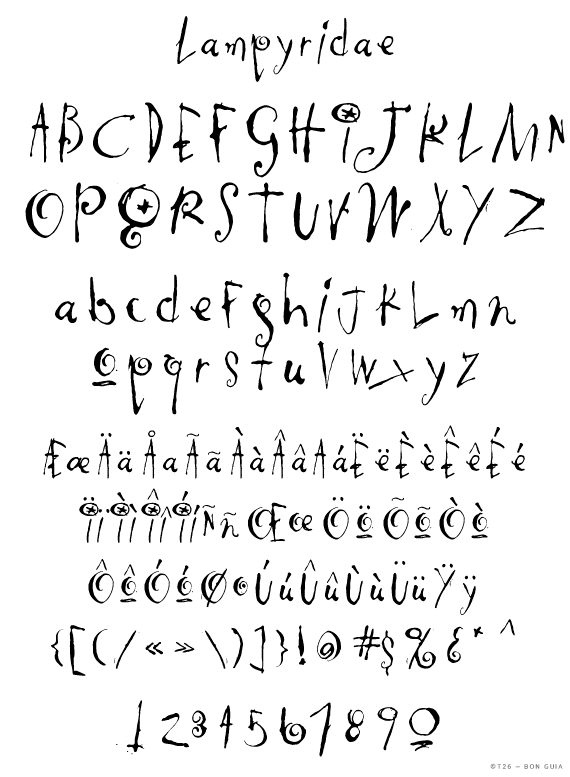 Lampyridae
ABCDEFGHIJKLMN
OPQRSTUVWXYZ
abcdefghijklmn
opqrstuvwxyz
ÆæÄäÅaÃãÀàÂâAáËëÈèÊêÉé
ÏÌÎÍÑñŒœÖöÕõÒò
ÔôÓóØøÚúÛûÙùÜüŸÿ
{[(/«»\)]}!@#$%&*^
1234567890
©T26 – BON GUIA